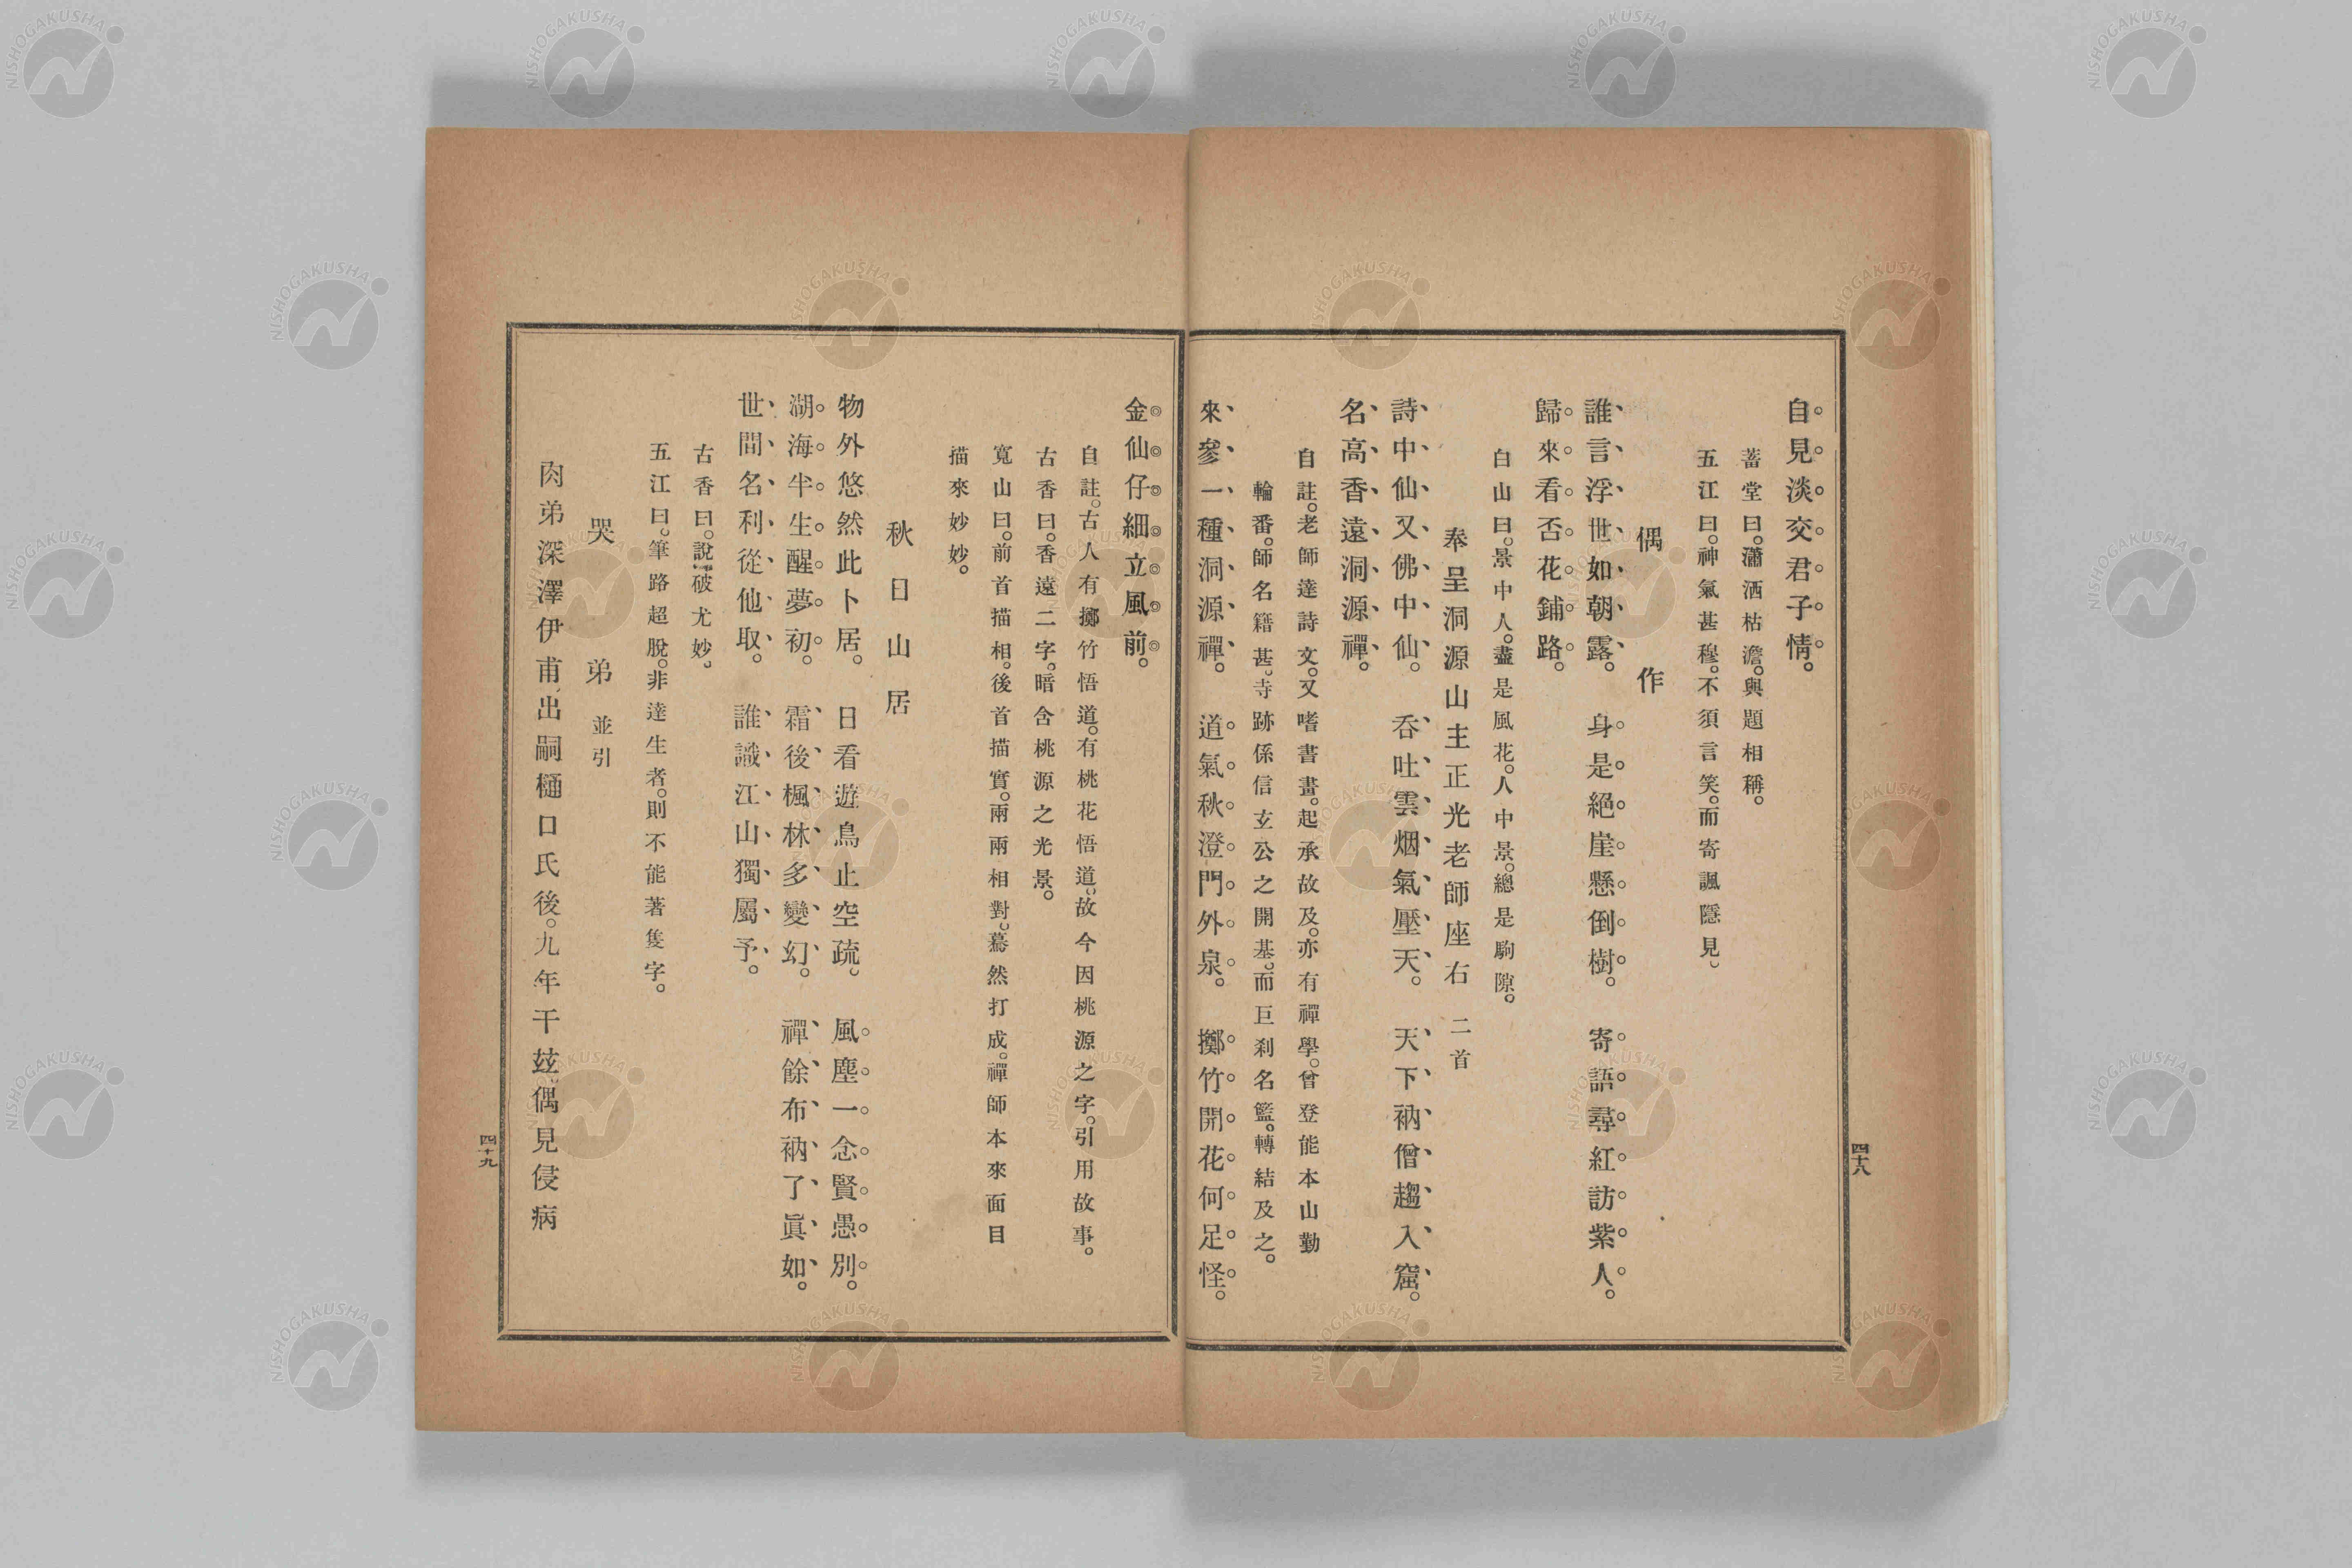 自見淡交君子情。
蓄堂曰。瀟洒枯澹。與題相稱。
五江曰。神氣甚穆。不須言笑。而寄諷隱見。
偶作
誰言浮世如朝露。身是絕崖懸倒樹。寄語尋紅訪紫人。
歸來看否花鋪路。
白山曰。景中人。盡是風花。人中景。總是駒隙。
奉呈洞源山主正光老師座右 二首
詩中仙又佛中仙。呑吐雲烟氣壓天。天下衲僧趨入窟。
名高香遠洞源禪。
自註。老師達詩文。又嗜書畫。起承故及。亦有禪學。曾登能本山勤
輪番。師名籍甚。寺跡係信玄公之開基。而巨刹名籃。轉結及之。
來參一種洞源禪。道氣秋澄門外泉。擲竹開花何足怪。
四十八
金仙仔細立風前。
自註。古人有擲竹悟道。有桃花悟道。故今因桃源之字。引用故事。
古香曰。香遠二字。暗含桃源之光景。
寬山曰。前首描相。後首描實。兩兩相對。驀然打成。禪師本來面目
描來妙妙。
秋日山居
物外悠然此卜居。日看遊鳥止空疏。風塵一念賢愚別。
湖海半生醒夢初。霜後楓林多變幻。禪餘布衲了眞如。
世間名利從他取。誰識江山獨屬予。
古香曰。說破尤妙。
五江曰。筆路超脫。非達生者。則不能著隻字。
哭弟 並引
肉弟深澤伊甫、出嗣樋口氏後。九年干玆。偶見侵病
四十九
NISHOGAKUSHA